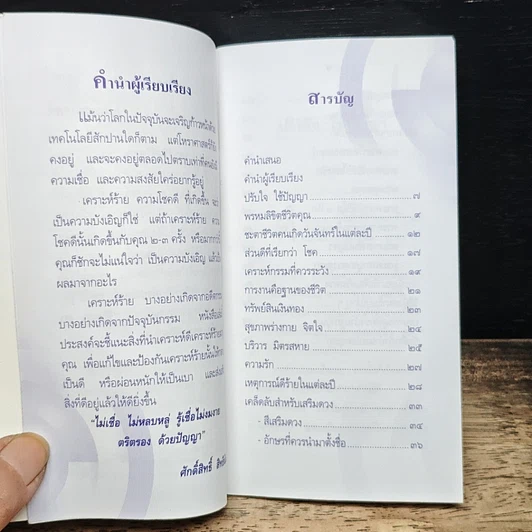 คำนำผู้เรียบเรียง
แม้นว่าโลกในปัจจุบันจะเจริญก้าวหน้าด้วย
เทคโนโลยีสักปานใดก็ตาม แต่โหราศาสตร์ก็ยัง
คงอยู่ และจะคงอยู่ตลอดไปตราบเท่าที่คนยังมี
ความเชื่อ และความสงสัยใคร่อยากรู้อยู่
เคราะห์ร้าย ความโชคดี ที่เกิดขึ้น
เป็นความบังเอิญก็ใช่ แต่ถ้าเคราะห์ร้าย
โชคดีนั้นเกิดขึ้นกับคุณ ๒-๓ ครั้ง หรือมากกว่า
คุณก็ชักจะไม่แน่ใจว่า เป็นความบังเอิญ
ผลมาจากอะไร
เคราะห์ร้าย บางอย่างเกิดจากอดีตกรรม
บางอย่างเกิดจากปัจจุบันกรรม หนังสือ
ประสงค์จะชี้แนะสิ่งที่นำเคราะห์ดีเคราะห์ร้าย
คุณ เพื่อแก้ไขและป้องกันเคราะห์ร้ายนั้น
เป็นดี หรือผ่อนหนักให้เป็นเบา และ
สิ่งที่ดีอยู่แล้วให้ดียิ่งขึ้น
"ไม่เชื่อ ไม่หลบหลู่ รู้เชื่อไม่งมงาย
ตริตรอง ด้วยปัญญา"
ศักดิ์สิทธิ์
สารบัญ
คำนำเสนอ
คำนำผู้เรียบเรียง
ปรับใจ ใช้ปัญญา ๗
พรหมลิขิตชีวิตคุณ ๙
ชะตาชีวิตคนเกิดวันจันทร์ในแต่ละปี ๑๒
ส่วนดีที่เรียกว่า โชค ๑๗
เคราะห์กรรมที่ควรระวัง ๑๙
การงานคือฐานของชีวิต ๒๑
ทรัพย์สินเงินทอง ๒๓
สุขภาพร่างกาย จิตใจ ๒๔
บริวาร มิตรสหาย ๒๕
ความรัก ๒๗
เหตุการณ์ดีร้ายในแต่ละปี ๒๘
เคล็ดลับสำหรับเสริมดวง ๓๓
- สีเสริมดวง ๓๔
- อักษรที่ควรนำมาตั้งชื่อ ๓๖